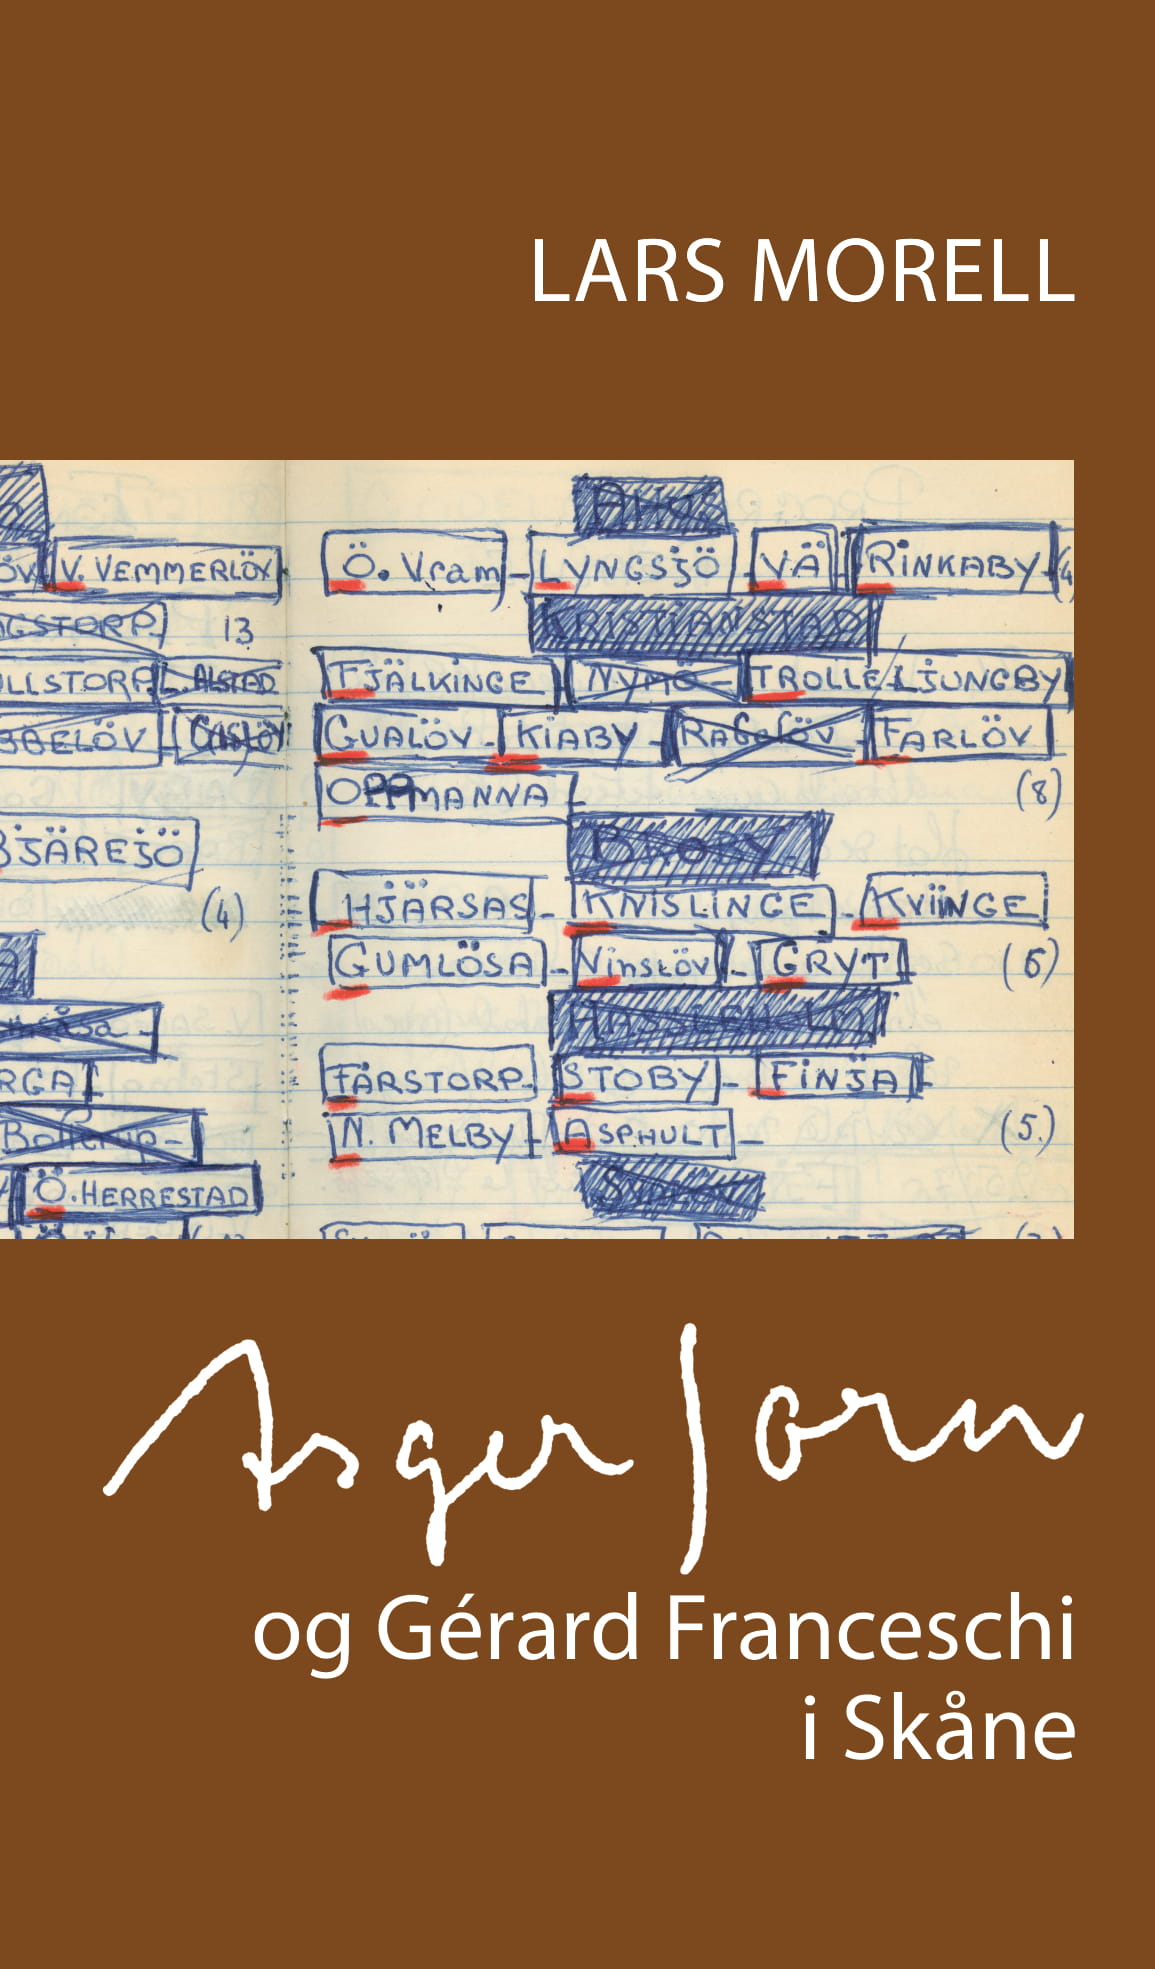 LARS MORELL
V. VEMMERLÖV
13
L. ALSTAD
BJÄREJÖ
(4)
Ö. HERRESTAD
Ö. Vram - LYNGSJÖ - VÄ - RINKABY
KRISTIANSTAD
FJÄLKINGE NYMÖ - TROLLE LJUNGBY
GUALÖV - KIABY - RAGELÖV - FARLÖV
OPPMANNA (8)
BROBY
HJÄRSAS - KNISLINGE - KVIINGE
GUMLÖSA - Ninslöv - GRYT (6)
HÄSSLEHOLM
FÄRSTORP STOBY - FINJA
N. MELBY - ASPHULT - (5.)
Asger Jorn
og Gérard Franceschi
i Skåne